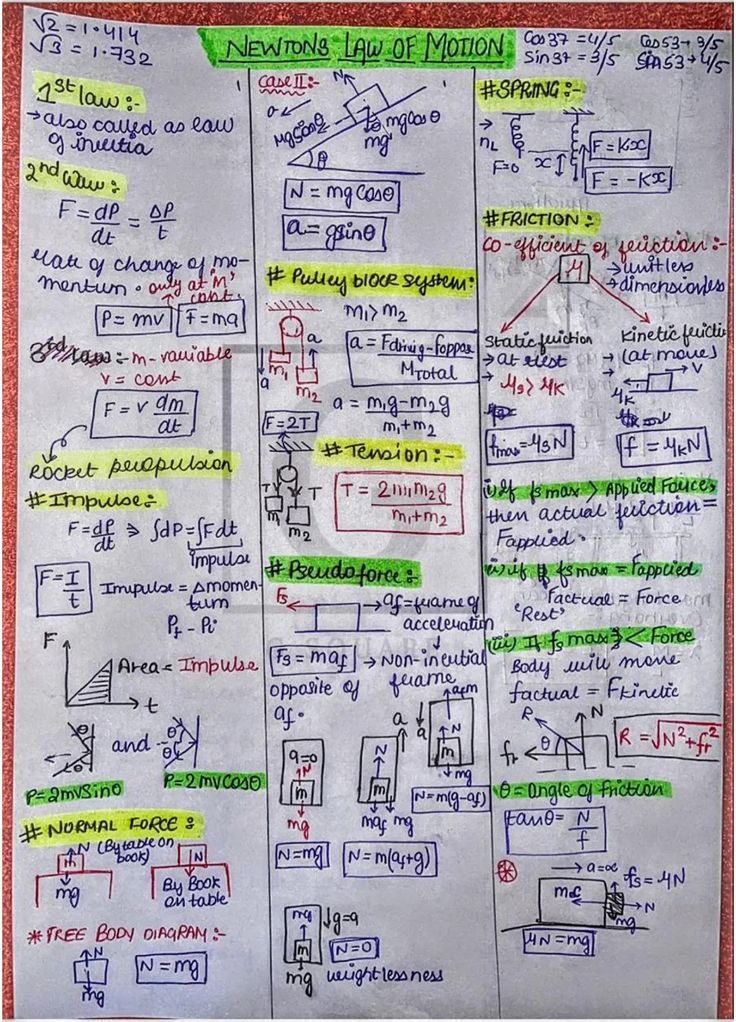 √2 = 1.414
√3 = 1.732
NEWTONS LAW OF MOTION
Cos37 = 4/5
Sin37 = 3/5
Cos53 → 3/5
Sin53 → 4/5
1st law :-
→ also called as law
of inertia
2nd law :-
F = dP/dt = ΔP/t
rate of change of mo-
mentum. only at 'm'
const.
P = mv
F = ma
3rd law :- m - variable
v = const
F = v dm/dt
Rocket propulsion
# Impulse :-
F = dP/dt ⇒ ∫dP = ∫F dt
impulse
F = I/t
Impulse = Δmomen-
tum
Pf - Pi
F
Area = Impulse
t
θ
θ
and
θ
θ
P = 2mvSinθ
P = 2mvCosθ
# NORMAL FORCE :
N (By table on
book)
m
mg
N
By Book
on table
* FREE BODY DIAGRAM :-
N
mg
N = mg
Case II :-
N
a
mgSinθ
mgCosθ
mg
θ
N = mgCosθ
a = gsinθ
# Pulley block system :
m1 > m2
a
m1
m2
a
a = Fdriving - Foppos / MTotal
a = m1g - m2g / m1 + m2
F = 2T
# Tension :-
T
T
m1
m2
T = 2m1m2g / m1 + m2
# Pseudoforce :-
Fs
af = frame of
acceleration
Fs = maf → Non-inertial
frame
opposite of
af.
a=0
N
m
mg
N = mg
N
m
maf mg
a
N = m(af+g)
a
m
mg
N = m(g-af)
m
mg
↓g=a
N = 0
weightlessness
# SPRING :-
F=0
x
F = Kx
F = -Kx
# FRICTION :-
Co-efficient of friction :-
μ
→ unitless
→ dimensionless
Static friction
→ at rest
→ μs > μK
fmax = μsN
Kinetic friction
→ (at move)
→ V
μK
f = μKN
i) If fs max > Applied Force,
then actual friction =
Fapplied.
ii) if fs max = Fapplied
Factual = Force
'Rest'
(iii) If fs max < Force
Body will move
factual = Fkinetic
R
N
fr
θ
R = √N² + fr²
θ = angle of friction
tanθ = N/f
→ a=∝
fs = μN
N
mg
μN = mg